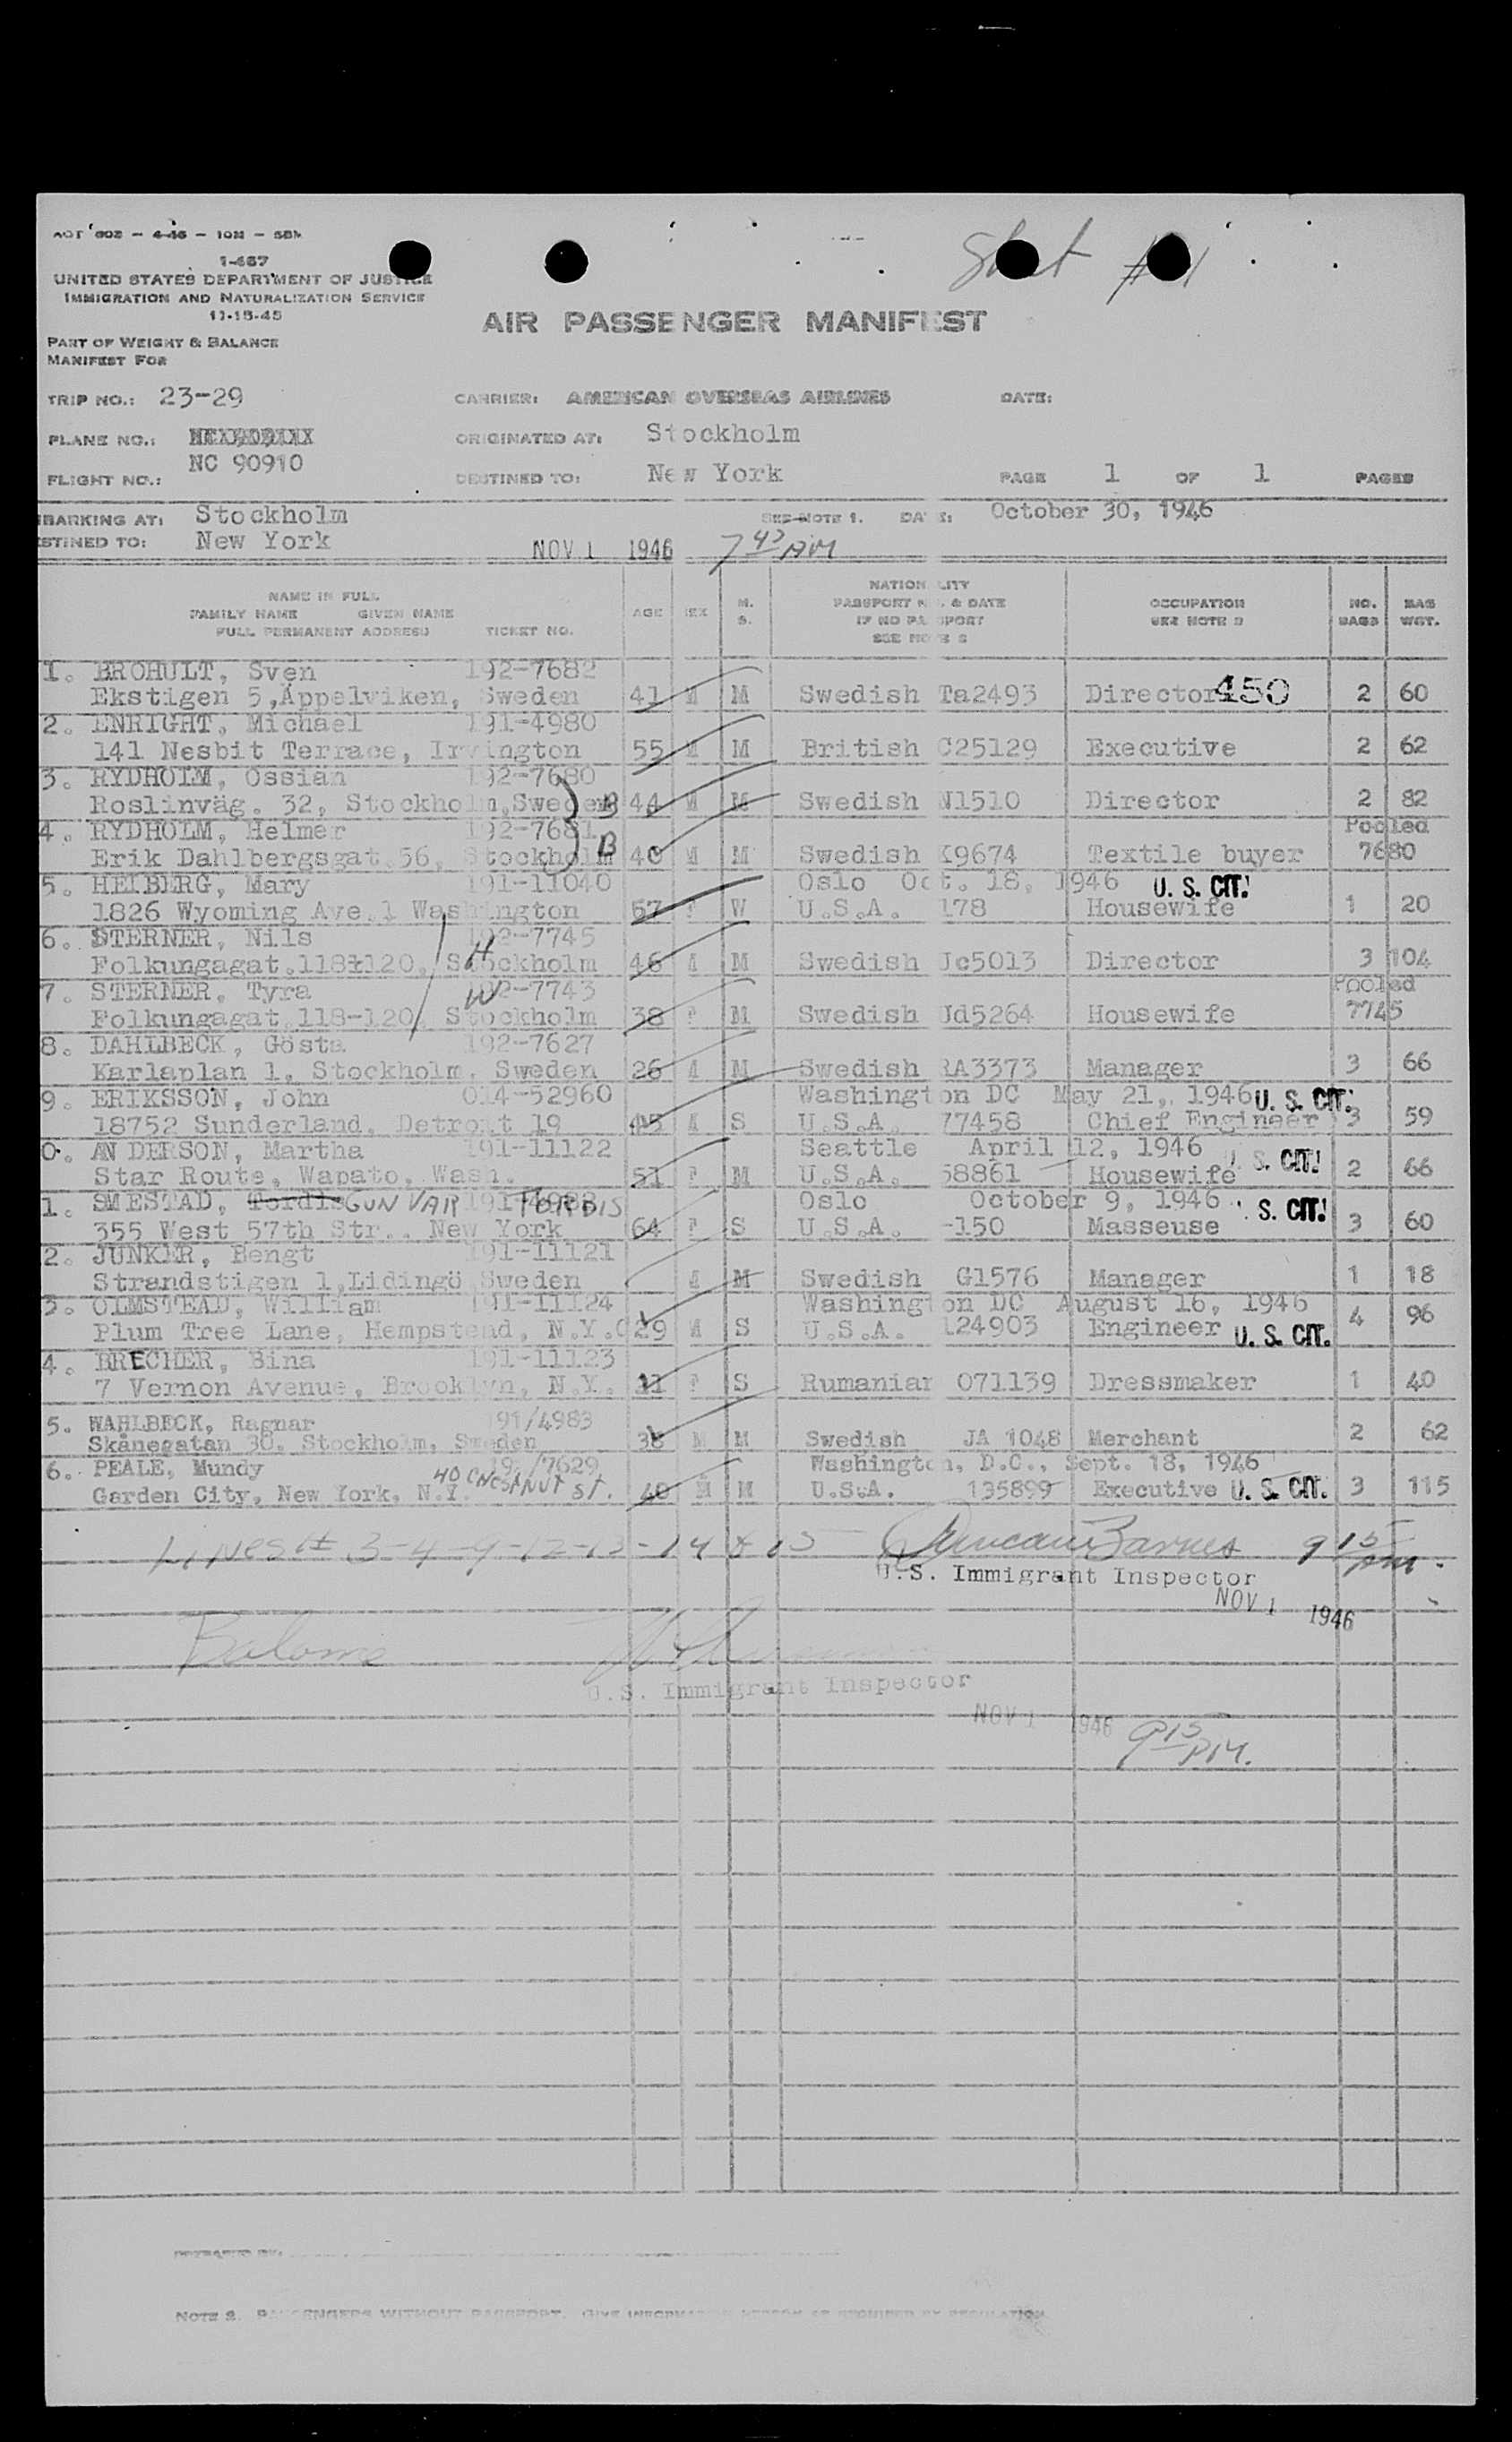 1-467
UNITED STATES DEPARTMENT OF JUSTICE
IMMIGRATION AND NATURALIZATION SERVICE
11-15-45
Sheet # 1
AIR PASSENGER MANIFEST
PART OF WEIGHT & BALANCE
MANIFEST FOR
TRIP NO.: 23-29 CARRIER: AMERICAN OVERSEAS AIRLINES DATE:
PLANE NO.: ORIGINATED AT: Stockholm
NC 90910
FLIGHT NO.: DESTINED TO: New York PAGE 1 OF 1 PAGES
BARKING AT: Stockholm SEE NOTE 1. DATE: October 30, 1946
STINED TO: New York NOV 1 1946 7 45 AM
NAME IN FULL
FAMILY NAME GIVEN NAME
FULL PERMANENT ADDRESS TICKET NO. AGE SEX M. S. NATIONALITY PASSPORT NO. & DATE IF NO PASSPORT SEE NOTE 2 OCCUPATION SEE NOTE 2 NO. BAGS BAG WGT.
1. BROHULT, Sven 192-7682
Ekstigen 5,Äppelviken, Sweden 41 M M Swedish Ta2493 Director 450 2 60
2. ENRIGHT, Michael 191-4980
141 Nesbit Terrace, Irvington 55 M M British C25129 Executive 2 62
3. RYDHOLM, Ossian 192-7680
Roslinväg. 32, Stockholm,Sweden B 44 M M Swedish N1510 Director 2 82
4. RYDHOLM, Helmer 192-7681 Pooled
Erik Dahlbergsgat.56, Stockholm B 40 M M Swedish K9674 Textile buyer 7680
5. HEIBERG, Mary 191-11040 Oslo Oct. 18, 1946 U. S. CIT.
1826 Wyoming Ave.1 Washington 57 F W U.S.A. 178 Housewife 1 20
6. STERNER, Nils 192-7745
Folkungagat.118-120, Stockholm H 46 M M Swedish Jc5013 Director 3 104
7. STERNER, Tyra 192-7743 W Pooled
Folkungagat.118-120, Stockholm 38 F M Swedish Jd5264 Housewife 7745
8. DAHLBECK, Gösta 192-7627
Karlaplan 1, Stockholm, Sweden 26 M M Swedish RA3373 Manager 3 66
9. ERIKSSON, John 014-52960 Washington DC May 21, 1946 U. S. CIT.
18752 Sunderland, Detroit 19 45 M S U.S.A. 77458 Chief Engineer 3 59
0. ANDERSON, Martha 191-11122 Seattle April 12, 1946 U. S. CIT.
Star Route, Wapato, Wash. 51 F M U.S.A. 58861 Housewife 2 66
1. SMESTAD, Tordis GUNVAR TORDIS Oslo October 9, 1946 S. CIT.
355 West 57th Str., New York 64 F S U.S.A. -150 Masseuse 3 60
2. JUNKER, Bengt 191-11121
Strandstigen 1,Lidingö Sweden M M Swedish G1576 Manager 1 18
3. OLMSTEAD, William 191-11124 Washington DC August 16, 1946
Plum Tree Lane, Hempstead, N.Y. 29 M S U.S.A. 124903 Engineer U. S. CIT. 4 96
4. BRECHER, Bina 191-11123
7 Vernon Avenue, Brooklyn, N.Y. F S Rumanian 071139 Dressmaker 1 40
5. WAHLBECK, Ragnar 191/4983
Skånegatan 30, Stockholm, Sweden 38 M M Swedish JA 1048 Merchant 2 62
6. PEALE, Mundy 192/7629 Washington, D.C., Sept. 18, 1946
Garden City, New York, N.Y. 40 CHESTNUT ST. 40 M M U.S.A. 135899 Executive U. S. CIT. 3 115
LINES # 3-4-9-12-13-14 & 15 Duncan Barnes 9 15 PM.
U.S. Immigrant Inspector
NOV 1 1946
Balance
U.S. Immigrant Inspector
NOV 1 1946 9 15 P.M.
NOTE 2. PASSENGERS WITHOUT PASSPORT, GIVE INFORMATION